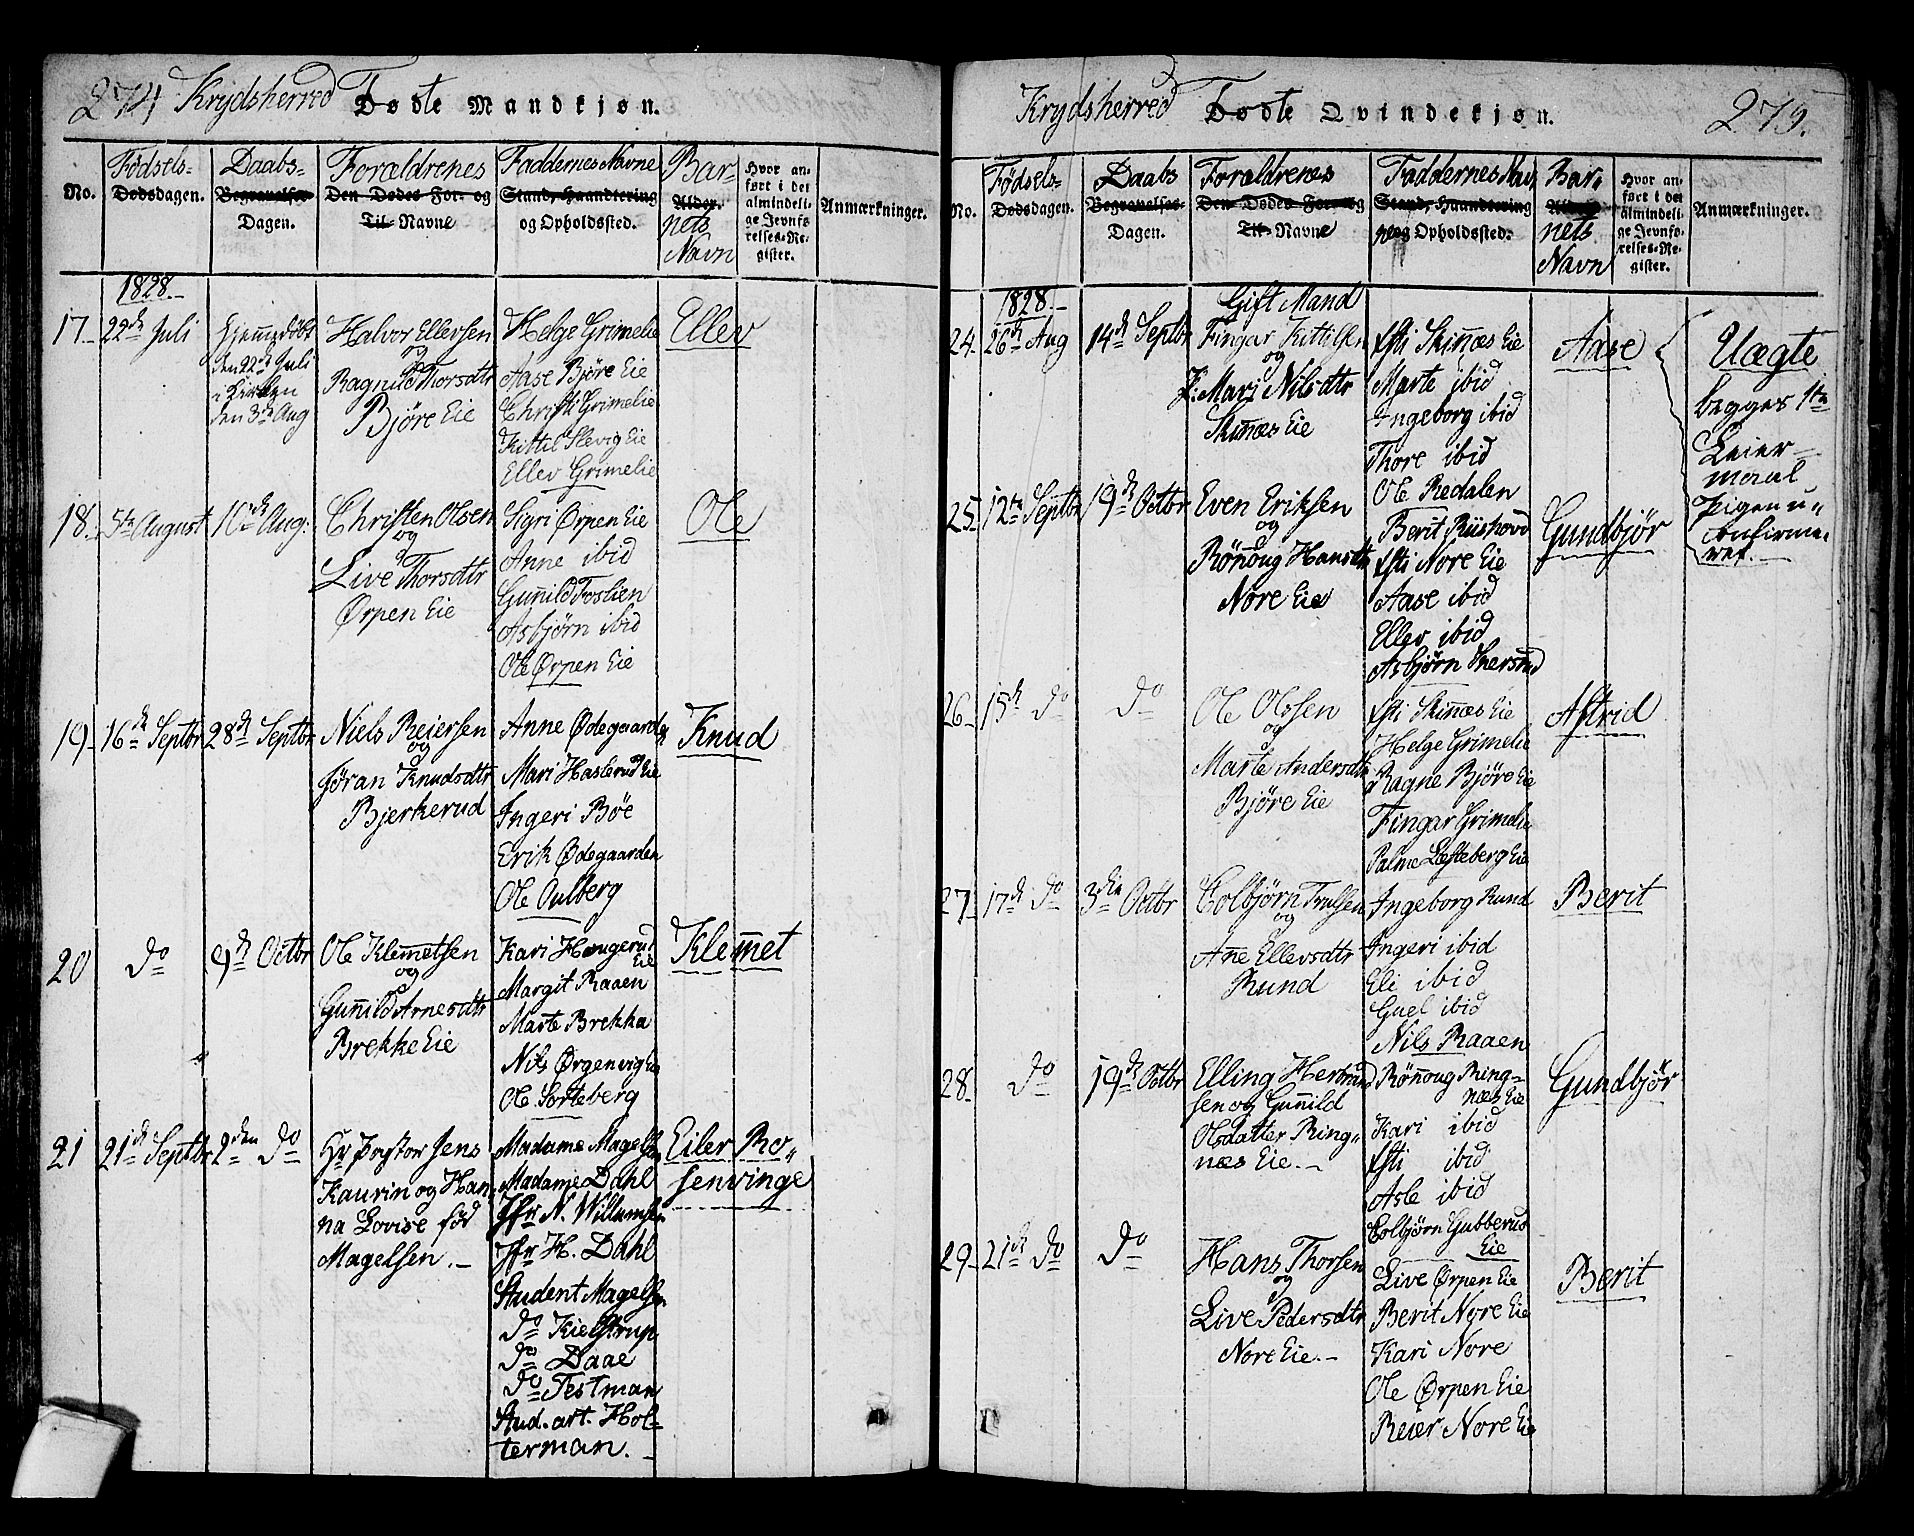 274 Krydsherred Fødte Mandkjøn.
No.
Fødsels-
Dødsdagen.
Daabs-
Begravelses-
Dagen.
Forældrenes
Den Dødes For- og
Til- Navne
Faddernes Navne
Stand, Haandtering
og Opholdssted.
Bar-
Alder.
nets
Navn
Hvor an-
ført i det
almindeli-
ge Jevnfø-
relses-Re-
gister.
Anmærkninger.
1828.
17. 22de Juli
Hjemmedøbt
den 22de Juli
i Kirken
den 3die Aug
Halvor Ellevsen
og
Ragnild Thorsdtr
Bjøre Eie
Helge Grimelie
Aase Bjøre Eie
Christi Grimelie
Kittil Slevig Eie
Ellev Grimelie
Ellev
18. 5te August 10de Aug:
Christen Olsen
og
Live Thorsdtr
Ørpen Eie
Sigri Ørpen Eie
Anne ibid
Gunild Foslien
Asbjørn ibid
Ole Ørpen Eie
Ole
19. 16de Septbr 28de Septbr
Niels Reiersen
og
Jøran Knudsdtr
Bjerkerud
Anne Ødegaarden
Mari Haslerud Eie
Ingeri Bøe
Erik Ødegaarden
Ole Aulberg
Knud
20 do 9de Octbr
Ole Klemetsen
og
Gunild Arnesdtr
Brekke Eie
Kari Haugerud
Eie
Margit Raaen
Marte Brekka
Nils Ørgenvig Eie
Ole Sorteberg
Klemet
21 21de Septbr 2den do
Hr Pastor Jens
Kaurin og Han-
na Lovise fød
Magelsen.
Madame Magelsen
Madame Dahl
Jfr N. Willumsen
Jfr H. Dahl
Student Magelsen
do Kielstrup
do Daae
do Testman
Stud. art. Hol-
terman.
Eiler Ro-
senvinge
Krydsherred Fødte Qvindekjøn. 275.
No.
Fødsels-
Dødsdagen.
Daabs
Begravelses-
Dagen.
Forældrenes
Den Dødes For- og
Til- Navne
Faddernes Nav,
Stand, Haandtering
og Opholdssted.
Bar-
Alder
nets
Navn
Hvor an-
ført i det
almindeli-
ge Jevnfø-
relses-Re-
gister.
Anmærkninger.
1828.
24. 26de Aug 14de Septbr
Gift Mand
Fingar Kittilsen
og
P: Mari Nilsdtr
Skinnes Eie
Isti Skinnes Eie
Marte ibid
Ingeborg ibid
Thore ibid
Ole Redalen
Aase
Uægte
begges 1te
Leier-
maal
Pigen u-
confirme-
ret.
25. 12te Septbr 19de Octbr
Even Eriksen
og
Rønnoug Hansdtr
Nore Eie
Berit Riishovd
Isti Nore Eie
Aase ibid
Ellev ibid
Asbjørn Skersrud
Gundbjør
26. 15de do do
Ole Olssen
og
Marte Andersdtr
Bjøre Eie
Isti Skinnes Eie
Helge Grimelie
Ragne Bjøre Eie
Fingar Grimelie
Palme Lesteberg Eie
Astrid
27. 17de do 3die Octbr
Colbjørn Trulsen
og
Anne Ellevsdtr
Rund
Ingeborg Rund
Ingeri ibid
Eli ibid
Guel ibid
Nils Raaen
Berit
28. do 19de Octbr
Elling Herbrand
sen og Gunnild
Olsdatter Ring-
næs Eie.
Rønnoug Ring-
næs Eie
Kari ibid
Isti ibid
Asle ibid
Colbjørn Gubberud
Eie
Gundbjør
29. 21de do do
Hans Thorsen
og
Live Pedersdtr
Nore Eie.
Live Ørpen Eie
Berit Nore Eie
Kari Nore
Ole Ørpen Eie
Reier Nore Eie
Berit